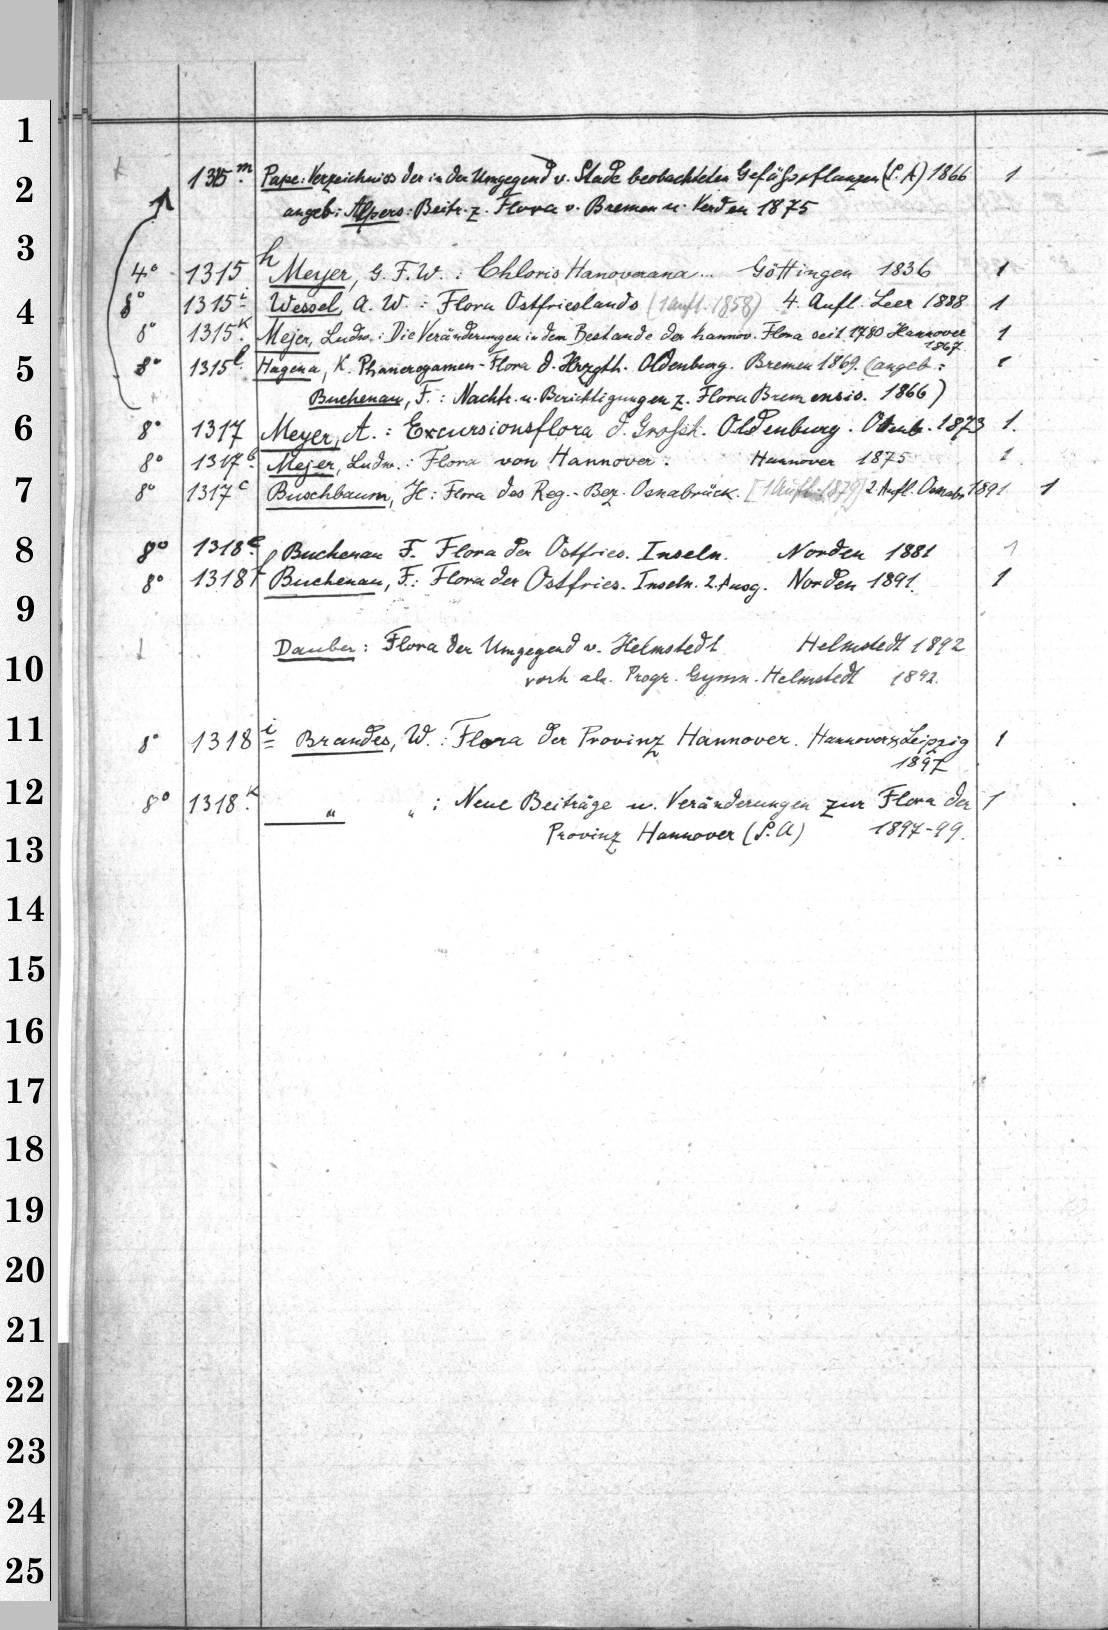 1
1315 m Pape: Verzeichniss der in der Umgegend v. Stade beobachteten Gefäßpflanzen (S. A) 1866 1
2
angeb: Alpers: Beitr. z. Flora v. Bremen u. Verden 1875
3
4° 1315 h Meyer, G. F. W.: Chloris Hanoverana... Göttingen 1836 1
4
8° 1315 i Wessel, A. W.: Flora Ostfrieslands (1 aufl. 1858) 4. Aufl. Leer 1888 1
8° 1315 K Mejer, Ludw.: Die Veränderungen in dem Bestande der hannov. Flora seit 1780 Hannover 1
1867
5
8° 1315 l Hagena, K. Phanerogamen-Flora d. Hrzgth. Oldenburg. Bremen 1869. (angeb: 1
Buchenau, F.: Nachtr. u. Berichtigungen z. Flora Bremensis. 1866)
6
8° 1317 Meyer, A.: Excursionsflora d. Grofsh. Oldenburg. 1873 1.
8° 1317 b Mejer, Ludw.: Flora von Hannover. Hannover 1875 1
7
8° 1317 c Buschbaum, H: Flora des Reg.-Bez. Osnabrück. [1 Aufl. 1879] 2 Aufl. Osnabr 1891 1
8
8° 1318 e Buchenau F. Flora der Ostfries. Inseln. Norden 1881 1
8° 1318 f Buchenau, F.: Flora der Ostfries. Inseln. 2. Ausg. Norden 1891. 1
9
Dauber: Flora der Umgegend v. Helmstedt Helmstedt 1892
10
Progr. Gymn. Helmstedt 1892.
11
8° 1318 i Brandes, W.: Flora der Provinz Hannover. Hannover & Leipzig 1
1897
12
8° 1318 K " " : Neue Beiträge u. Veränderungen zur Flora der 1
Provinz Hannover (S. A) 1897-99.
13
14
15
16
17
18
19
20
21
22
23
24
25